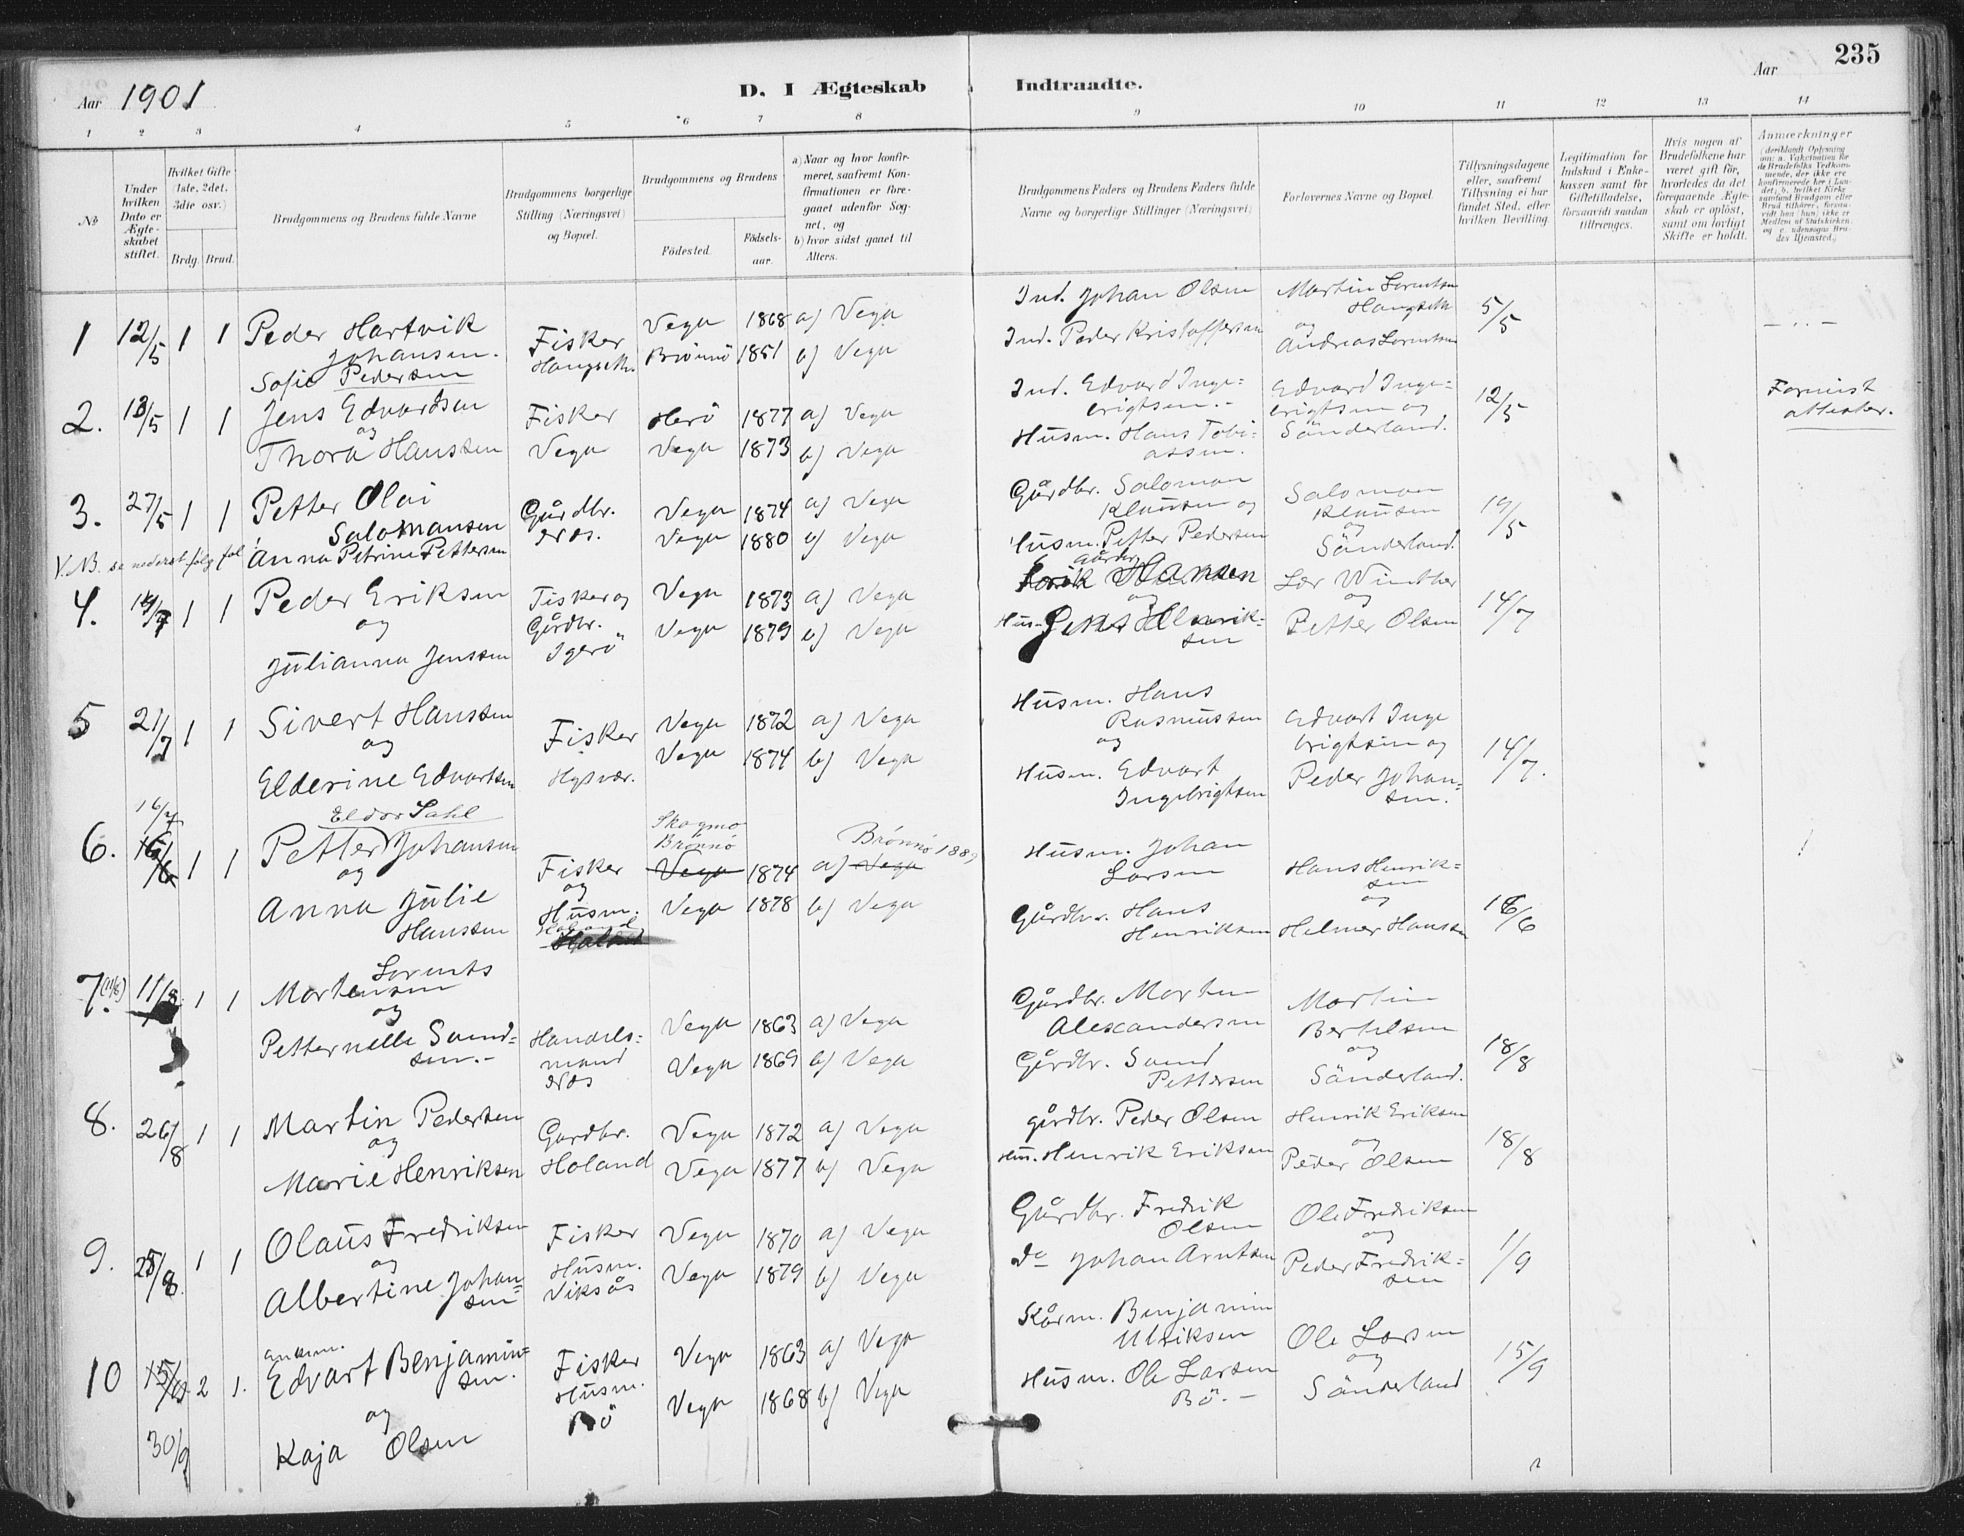 235
Aar 1901
D. I Ægteskab Indtraadte.
Aar
1 2 3 4 5 6 7 8 9 10 11 12 13 14
No
Under hvilken Dato er Ægteskabet stiftet.
Hvilket Gifte (1ste, 2det, 3die osv.)
Brdg. Brud.
Brudgommens og Brudens fulde Navne
Brudgommens borgerlige Stilling (Næringsvei) og Bopæl.
Brudgommens og Brudens
Födested.
Födselsaar.
a) Naar og hvor konfirmeret, saafremt Konfirmationen er foregaaet udenfor Sognet, og
b) hvor sidst gaaet til Alters.
Brudgommens Faders og Brudens Faders fulde Navne og borgerlige Stillinger (Næringsvei)
Forlovernes Navne og Bopæl.
Tillysningsdagene eller, saafremt Tillysning ei har fundet Sted, efter hvilken Bevilling.
Legitimation for Indskud i Enkekassen samt for Giftetilladelse, forsaavidt saadan tiltrænges.
Hvis nogen af Brudefolkene har været gift för, hvorledes da det foregaaende Ægteskab er oplöst, samt om lovligt Skifte er holdt.
Anmærkninger
1 12/5 1 1 Peder Hartvik Johansen. Sofie Pedersen
Fisker
Vega 1868 a) Vega
Brönnö 1851 b) Vega
Ind. Johan Olsen
Ind. Peder Kristoffersen
Martin Lorentsen
og
Andreas Lorentsen
5/5
2. 13/5 1 1 Jens Edvardsen
og
Thora Hanssen
Fisker
Vega
Herö 1877 a) Vega
Vega 1873 b) Vega
Ind. Edvard Ingebrigtsen.
Husm. Hans Tobiassen.
Edvard Ingebrigtsen og
Sönderland.
12/5
attester.
3. 27/5 1 1 Petter Olai
Salomansen
Anna Petrine Pettersen
V.N.B. se nederst følg fol
Gårdbr.
Vega 1874 a) Vega
Vega 1880 b) Vega
Gårdbr. Salomon
Klausen og
Husm. Petter Pedersen
Salomon
Klausen
og
Sönderland.
19/5
4. 14/7 1 1 Peder Eriksen
og
Julianna Jenssen
Fisker og
Gårdbr.
Igerö
Vega 1873 a) Vega
Vega 1879 b) Vega
Gårdbr.
Erik Hansen
og
Husm. Jens Henriksen
Lor Winther
og
Petter Olsen
14/7
5 21/7 1 1 Sivert Hanssen
og
Elderine Edvartsen
Fisker
Hysvær.
Vega 1872 a) Vega
Vega 1874 b) Vega
Husm. Hans
Rasmussen
og
Husm. Edvart
Ingebrigtsen
Edvart Ingebrigtsen og
Peder Johansen.
14/7.
16/7
6. 1 1 Eldor Sahl
Petter Johansen
og
Anna Julie
Hanssen
Fisker
og
Husm.
Skogmo
Brönnö
Vega 1874 a) Vega
Brönnö 1889
Vega 1878 b) Vega
Husm. Johan
Larsen
Gårdbr. Hans
Henriksen
Hans Henriksen
og
Helmer Hanssen
16/6
7. (11/8) 11/8 1 1 Lorents
Mortensen
og
Petternelle Sundsen.-
Handelsmand
Vega 1863 a) Vega
Vega 1869 b) Vega
Gårdbr. Morten
Alexandersen
Gårdbr. Sund
Pettersen
Martin
Bertelsen
og
Sönderland.
18/8
8. 26/8 1 1 Martin Pedersen
og
Marie Henriksen
Gardbr.
Holand
Vega 1872 a) Vega
Vega 1877 b) Vega
gårdbr. Peder Olsen
Hus. Henrik Eriksen
Henrik Eriksen
og
Peder Olsen
18/8
9. 25/8 1 1 Olaus Fredriksen
og
Albertine Johansen
Fisker
Husm.
Viksås
Vega 1870 a) Vega
Vega 1879 b) Vega
Gårdbr. Fredrik
Olsen
do Johan Arntsen
Ole Fredriksen
og
Peder Fredriksen
1/9
10 15/9 2 1. Enkem.
Edvart Benjaminsen.
og
Kaja Olsen
30/9
Fisker
Husm.
Bö
Vega 1863 a) Vega
Vega 1868 b) Vega
Kårm. Benjamin
Ulriksen
Husm. Ole Larsen
Bö. -
Ole Larsen
og
Sönderland
15/9